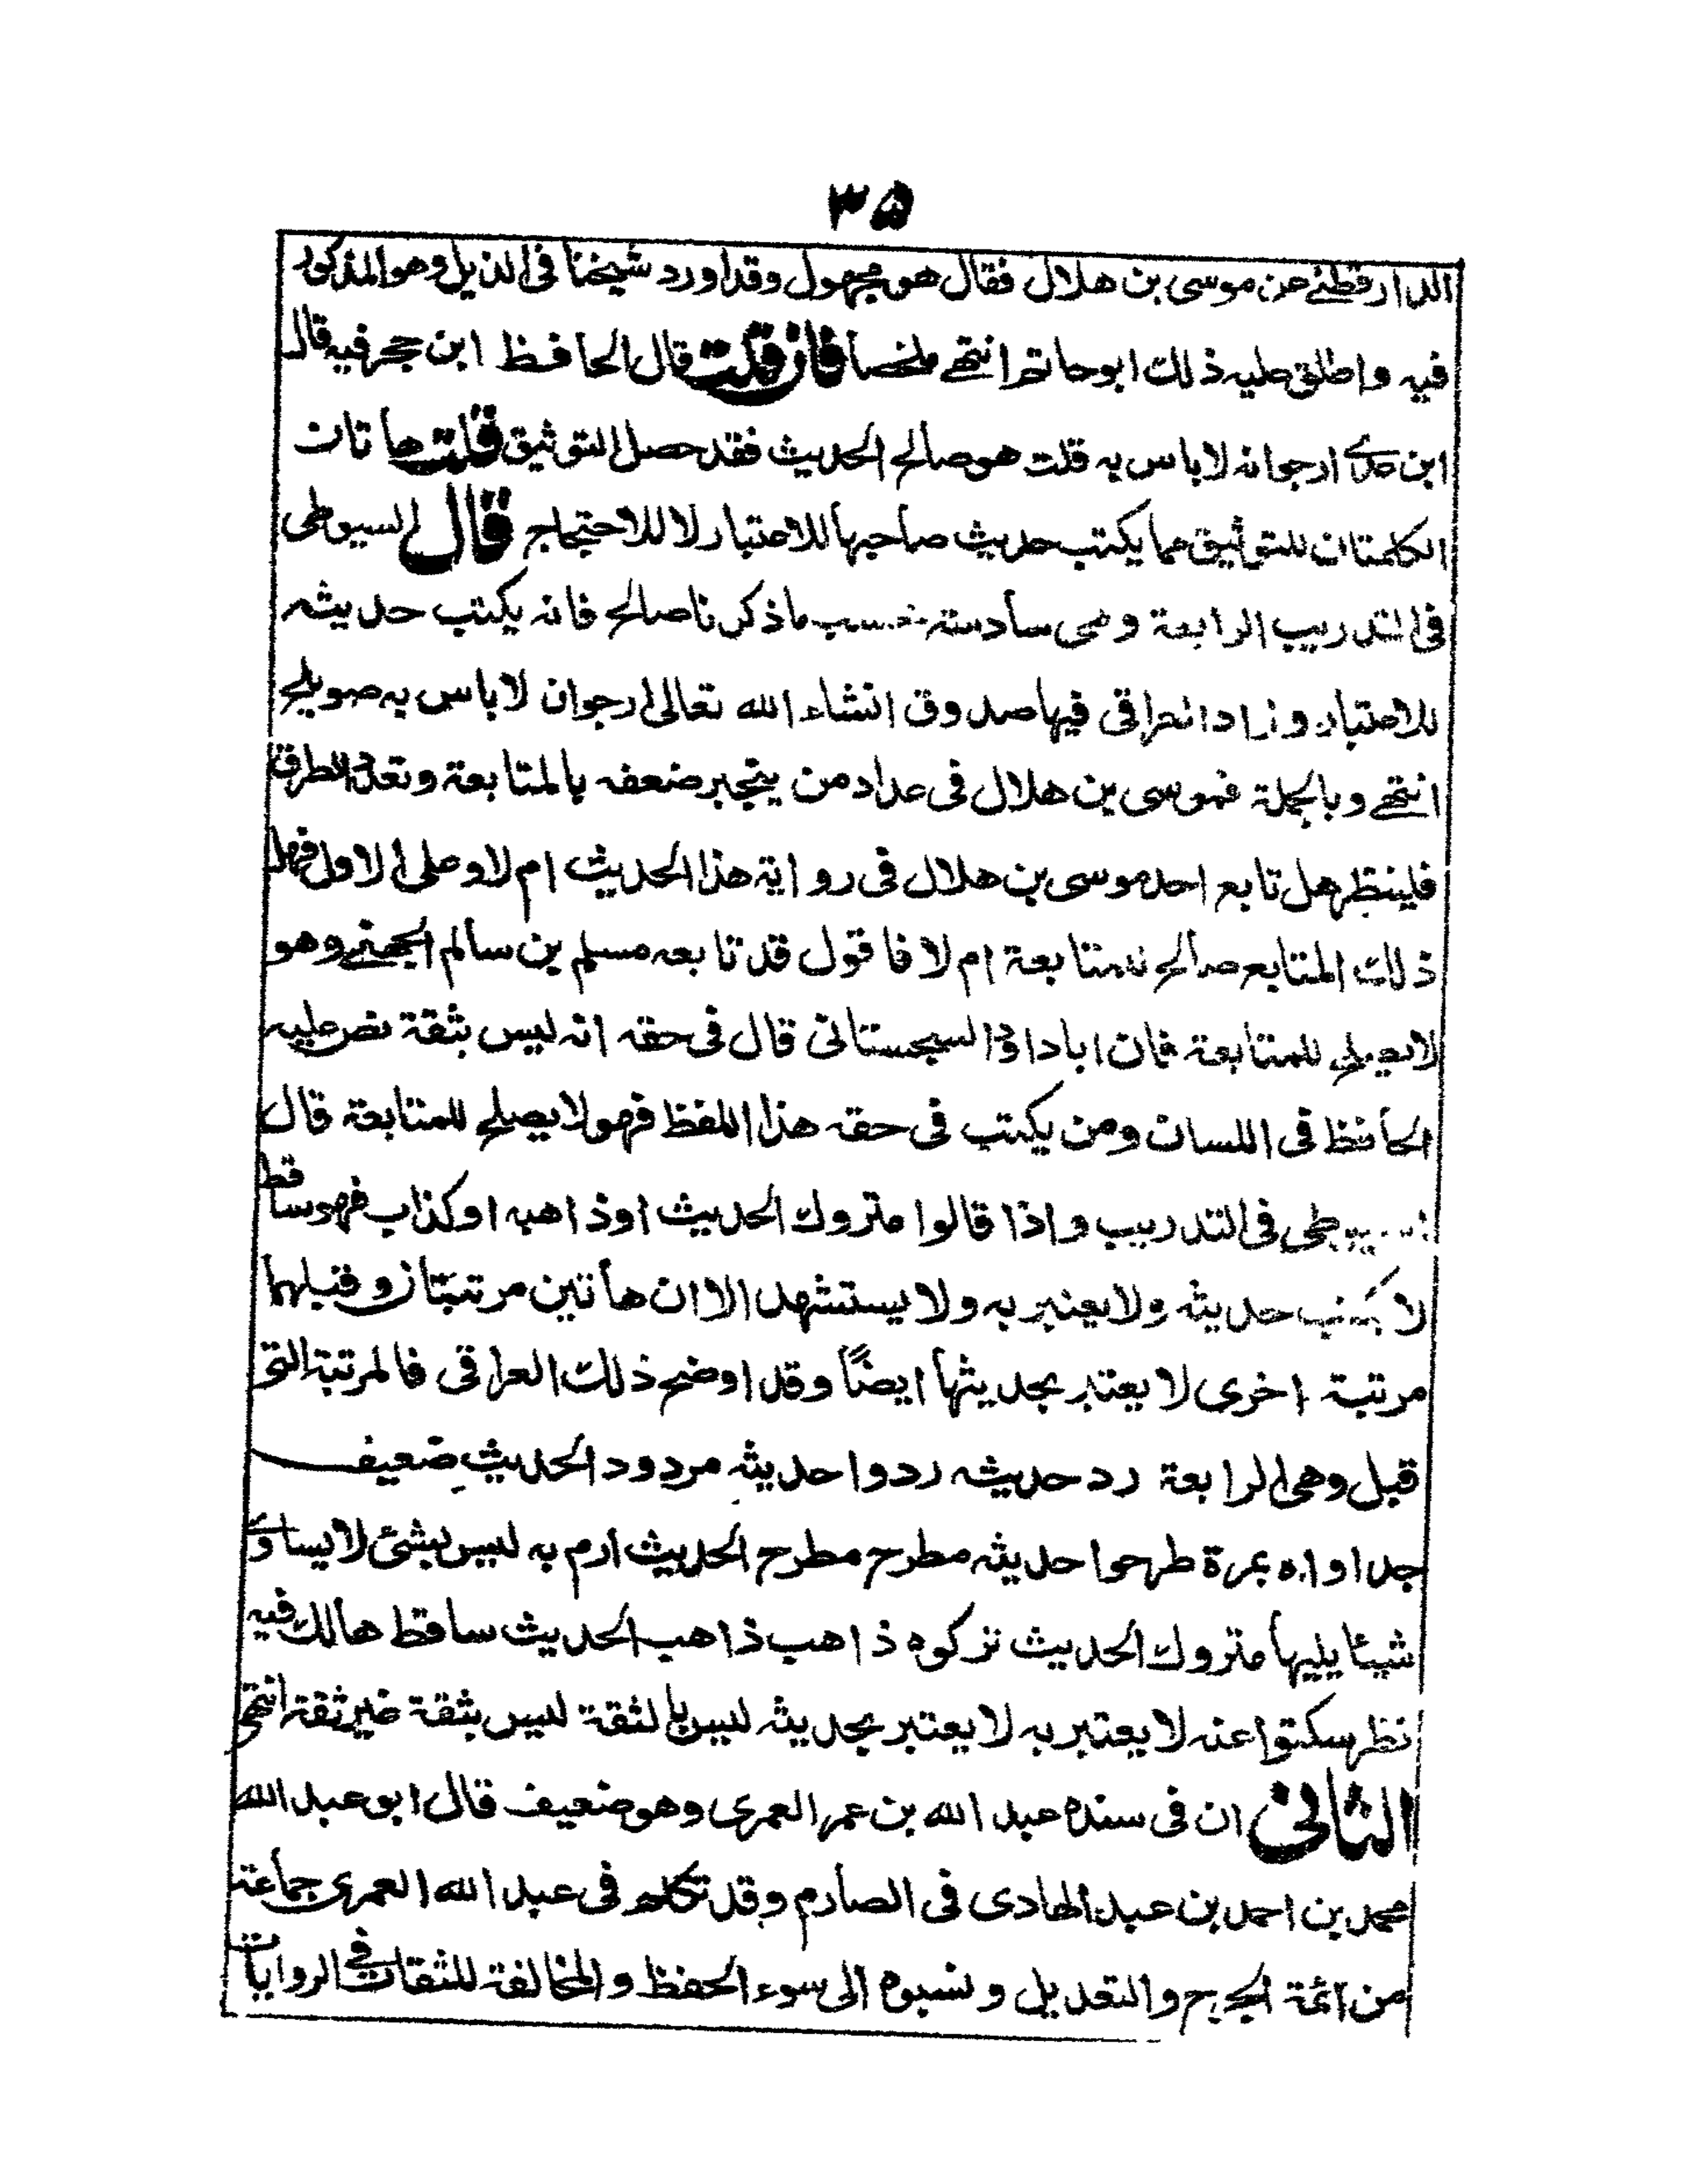 ۳۵
الدارقطنے عن موسی بن هلال فقال هو مجهول وقد اورد شيخنا فی الذيل وهو المذكور
فيه واطلق عليه ذلك ابو حاتم انتهے ملخصا فان قلت قال الحافظ ابن حجر فيه قال
ابن عدے ارجو انه لا باس به قلت هو صالح الحديث فقد حصل التوثيق قلت هاتان
الكلمتان للتوثيق مما يكتب حديث صاحبها للاعتبار لا للاحتجاج قال السيوطی
فی التدريب الرابعة وهی سادسته بحسب ما ذكرنا صالح فانه يكتب حديثه
للاعتبار وزاد العراقی فيها صدوق انشاء الله تعالی ارجو ان لا باس به صويلح
انتهے وبالجملة فموسی بن هلال فی عداد من ينجبر ضعفه بالمتابعة وتعدد الطرق
فلينظر هل تابع احد موسی بن هلال فی رواية هذا الحديث ام لا وعلی الاول فهل
ذلك المتابع صالح للمتابعة ام لا فاقول قد تابعه مسلم بن سالم الجهنے وهو
لا يصلح للمتابعة فان ابا داؤد السجستانی قال فی حقه انه ليس بثقة نص عليه
الحافظ فی اللسان ومن يكتب فی حقه هذا اللفظ فهو لا يصلح للمتابعة قال
السيوطی فی التدريب واذا قالوا متروك الحديث او ذاهبه او كذاب فهو ساقط
لا يكتب حديثه ولا يعتبر به ولا يستشهد الا ان هاتين مرتبتان وقبلهما
مرتبة اخری لا يعتبر بحديثها ايضاً وقد اوضح ذلك العراقی فالمرتبة التی
قبل وهی الرابعة رد حديثه ردوا حديثه مردود الحديث ضعيف
جدا واه بمرة طرحوا حديثه مطرح مطرح الحديث ارم به ليس بشئ لا يساوے
شيئا يليها متروك الحديث تركوه ذاهب ذاهب الحديث ساقط هالك فيه
نظر سكتوا عنه لا يعتبر به لا يعتبر بحديثه ليس بالثقة ليس بثقة غير ثقة انتهی
الثانی ان فی سنده عبد الله بن عمر العمری وهو ضعيف قال ابو عبد الله
محمد بن احمد بن عبد الهادی فی الصارم وقد تكلم فی عبد الله العمری جماعة
من ائمة الجرح والتعديل ونسبوه الی سوء الحفظ والمخالفة للثقات فی الروايات